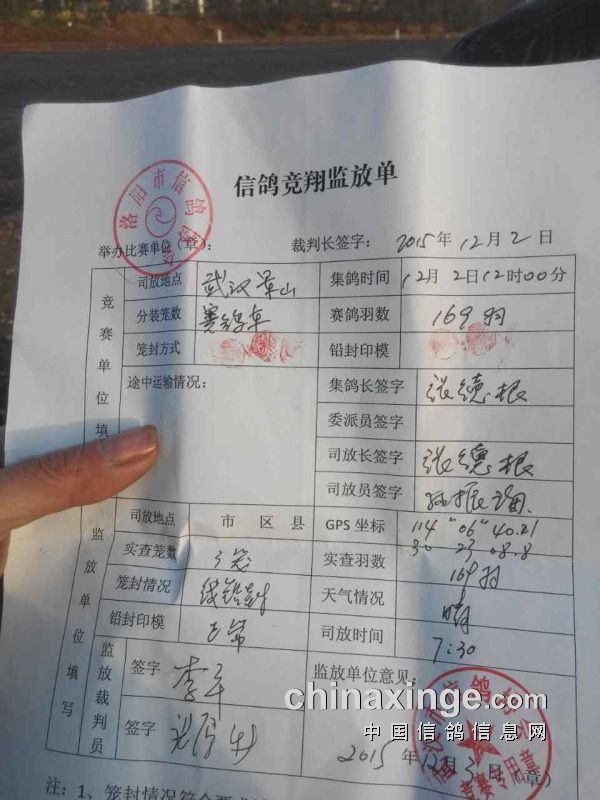 信鸽竞翔监放单
洛阳市信鸽
举办比赛单位(章): 裁判长签字: 2015年12月2日
竞赛单位填
司放地点 武汉 山 集鸽时间 12月2日12时00分
分装笼数 赛鸽车 赛鸽羽数 169羽
笼封方式 铅封印模
途中运输情况: 集鸽长签字 张德根
委派员签字
司放长签字 张德根
司放员签字 振
监放单位填写
司放地点 市 区 县 GPS坐标 114"06"40.21
30 23 08.8
实查笼数 3笼 实查羽数 169羽
笼封情况 线铅封 天气情况 晴
铅封印模 正常 司放时间 7:30
监放裁判员
签字 李平 监放单位意见:
签字
信鸽
2015年12月3日(章)
chinaxinge.com
中国信鸽信息网
注:1、笼封情况符合要求